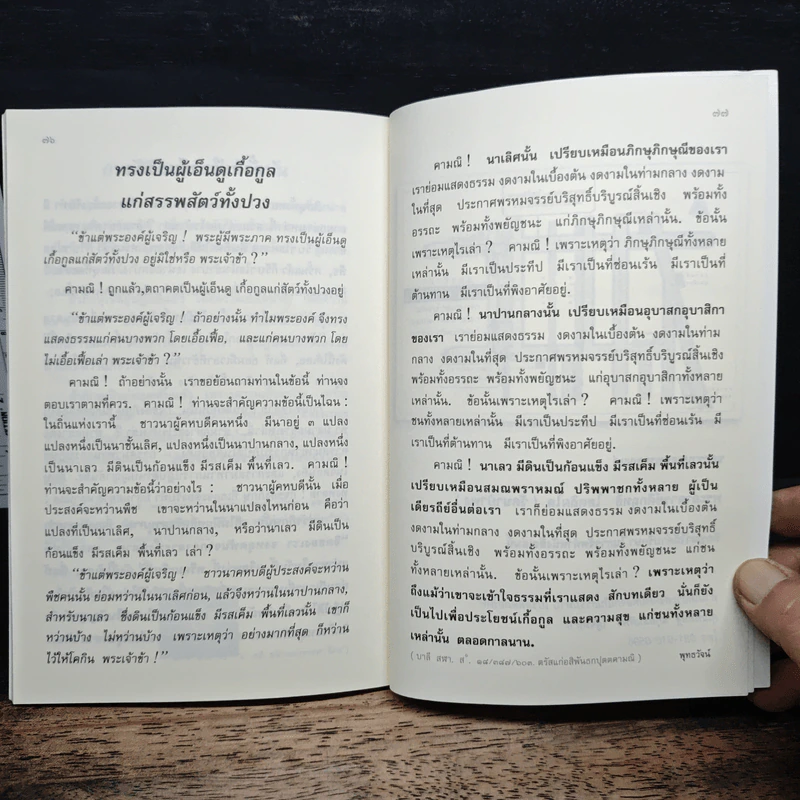 ๗๖
ทรงเป็นผู้เอ็นดูเกื้อกูล
แก่สรรพสัตว์ทั้งปวง
“ข้าแต่พระองค์ผู้เจริญ ! พระผู้มีพระภาค ทรงเป็นผู้เอ็นดู
เกื้อกูลแก่สัตว์ทั้งปวง อยู่มิใช่หรือ พระเจ้าข้า ?”
คามณิ ! ถูกแล้ว,ตถาคตเป็นผู้เอ็นดู เกื้อกูลแก่สัตว์ทั้งปวงอยู่
“ข้าแต่พระองค์ผู้เจริญ ! ถ้าอย่างนั้น ทำไมพระองค์ จึงทรง
แสดงธรรมแก่คนบางพวก โดยเอื้อเฟื้อ, และแก่คนบางพวก โดย
ไม่เอื้อเฟื้อเล่า พระเจ้าข้า ?”
คามณิ ! ถ้าอย่างนั้น เราขอย้อนถามท่านในข้อนี้ ท่านจง
ตอบเราตามที่ควร. คามณิ ! ท่านจะสำคัญความข้อนี้เป็นไฉน :
ในถิ่นแห่งเรานี้ ชาวนาผู้คหบดีคนหนึ่ง มีนาอยู่ ๓ แปลง
แปลงหนึ่งเป็นนาชั้นเลิศ, แปลงหนึ่งเป็นนาปานกลาง, แปลงหนึ่ง
เป็นนาเลว มีดินเป็นก้อนแข็ง มีรสเค็ม พื้นที่เลว. คามณิ !
ท่านจะสำคัญความข้อนี้ว่าอย่างไร : ชาวนาผู้คหบดีนั้น เมื่อ
ประสงค์จะหว่านพืช เขาจะหว่านในนาแปลงไหนก่อน คือว่า
แปลงที่เป็นนาเลิศ, นาปานกลาง, หรือว่านาเลว มีดินเป็น
ก้อนแข็ง มีรสเค็ม พื้นที่เลว เล่า ?
“ข้าแต่พระองค์ผู้เจริญ ! ชาวนาคหบดีผู้ประสงค์จะหว่าน
พืชคนนั้น ย่อมหว่านในนาเลิศก่อน, แล้วจึงหว่านในนาปานกลาง,
สำหรับนาเลว ซึ่งดินเป็นก้อนแข็ง มีรสเค็ม พื้นที่เลวนั้น เขาก็
หว่านบ้าง ไม่หว่านบ้าง เพราะเหตุว่า อย่างมากที่สุด ก็หว่าน
ไว้ให้โคกิน พระเจ้าข้า !”
๗๗
คามณิ ! นาเลิศนั้น เปรียบเหมือนภิกษุภิกษุณีของเรา
เราย่อมแสดงธรรม งดงามในเบื้องต้น งดงามในท่ามกลาง งดงาม
ในที่สุด ประกาศพรหมจรรย์บริสุทธิ์บริบูรณ์สิ้นเชิง พร้อมทั้ง
อรรถะ พร้อมทั้งพยัญชนะ แก่ภิกษุภิกษุณีเหล่านั้น. ข้อนั้น
เพราะเหตุไรเล่า ? คามณิ ! เพราะเหตุว่า ภิกษุภิกษุณีทั้งหลาย
เหล่านั้น มีเราเป็นประทีป มีเราเป็นที่ซ่อนเร้น มีเราเป็นที่
ต้านทาน มีเราเป็นที่พึ่งอาศัยอยู่.
คามณิ ! นาปานกลางนั้น เปรียบเหมือนอุบาสกอุบาสิกา
ของเรา เราย่อมแสดงธรรม งดงามในเบื้องต้น งดงามในท่าม
กลาง งดงามในที่สุด ประกาศพรหมจรรย์บริสุทธิ์บริบูรณ์สิ้นเชิง
พร้อมทั้งอรรถะ พร้อมทั้งพยัญชนะ แก่อุบาสกอุบาสิกาทั้งหลาย
เหล่านั้น. ข้อนั้นเพราะเหตุไรเล่า ? คามณิ ! เพราะเหตุว่า
ชนทั้งหลายเหล่านั้น มีเราเป็นประทีป มีเราเป็นที่ซ่อนเร้น มี
เราเป็นที่ต้านทาน มีเราเป็นที่พึ่งอาศัยอยู่.
คามณิ ! นาเลว มีดินเป็นก้อนแข็ง มีรสเค็ม พื้นที่เลวนั้น
เปรียบเหมือนสมณพราหมณ์ ปริพพาชกทั้งหลาย ผู้เป็น
เดียรถีย์อื่นต่อเรา เราก็ย่อมแสดงธรรม งดงามในเบื้องต้น
งดงามในท่ามกลาง งดงามในที่สุด ประกาศพรหมจรรย์บริสุทธิ์
บริบูรณ์สิ้นเชิง พร้อมทั้งอรรถะ พร้อมทั้งพยัญชนะ แก่ชน
ทั้งหลายเหล่านั้น. ข้อนั้นเพราะเหตุไรเล่า ? เพราะเหตุว่า
ถึงแม้ว่าเขาจะเข้าใจธรรมที่เราแสดง สักบทเดียว นั่นก็ยัง
เป็นไปเพื่อประโยชน์เกื้อกูล และความสุข แก่ชนทั้งหลาย
เหล่านั้น ตลอดกาลนาน.
( บาลี สฬา. สํ. ๑๘/๓๘๗/๖๐๓. ตรัสแก่อสิพันธกปุตตคามณิ ) พุทธวัจน์